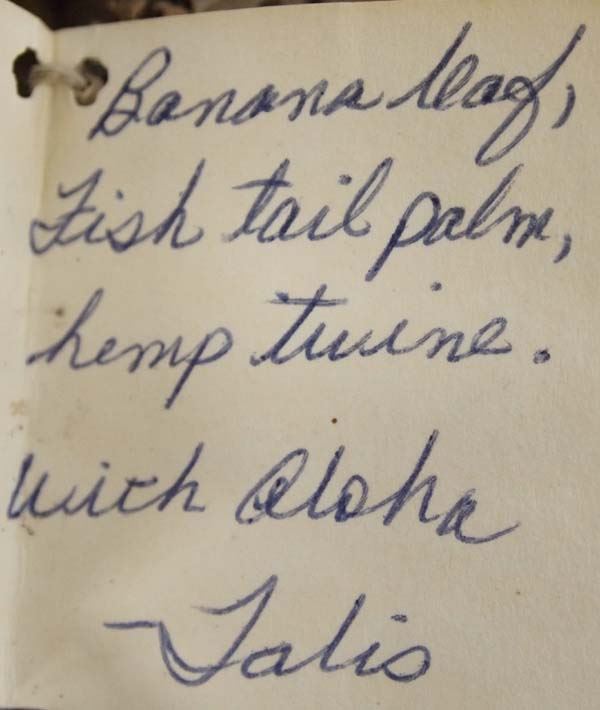 Banana leaf,
Fish tail palm,
hemp twine.
With Aloha
- Talis